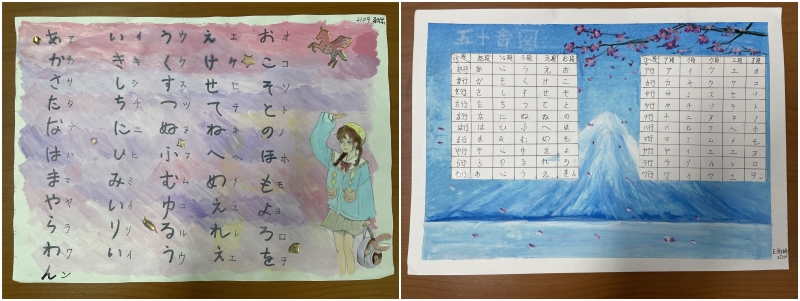 2109
あ い う え お
ア イ ウ エ オ
か き く け こ
カ キ ク ケ コ
さ し す せ そ
サ シ ス セ ソ
た ち つ て と
タ チ ツ テ ト
な に ぬ ね の
ナ ニ ヌ ネ ノ
は ひ ふ へ ほ
ハ ヒ フ ヘ ホ
ま み む め も
マ ミ ム メ モ
や い ゆ え よ
ヤ イ ユ エ ヨ
ら り る れ ろ
ラ リ ル レ ロ
わ い う え を
ワ イ ウ エ ヲ
ん
ン
図音十五
行段 あ段 い段 う段 え段 お段
あ行 あ い う え お
か行 か き く け こ
さ行 さ し す せ そ
た行 た ち つ て と
な行 な に ぬ ね の
は行 は ひ ふ へ ほ
ま行 ま み む め も
や行 や い ゆ え よ
ら行 ら り る れ ろ
わ行 わ い う え を ん
行段 ア段 イ段 ウ段 エ段 オ段
ア行 ア イ ウ エ オ
カ行 カ キ ク ケ コ
サ行 サ シ ス セ ソ
タ行 タ チ ツ テ ト
ナ行 ナ ニ ヌ ネ ノ
ハ行 ハ ヒ フ ヘ ホ
マ行 マ ミ ム メ モ
ヤ行 ヤ イ ユ エ ヨ
ラ行 ラ リ ル レ ロ
ワ行 ワ イ ウ エ ヲ ン